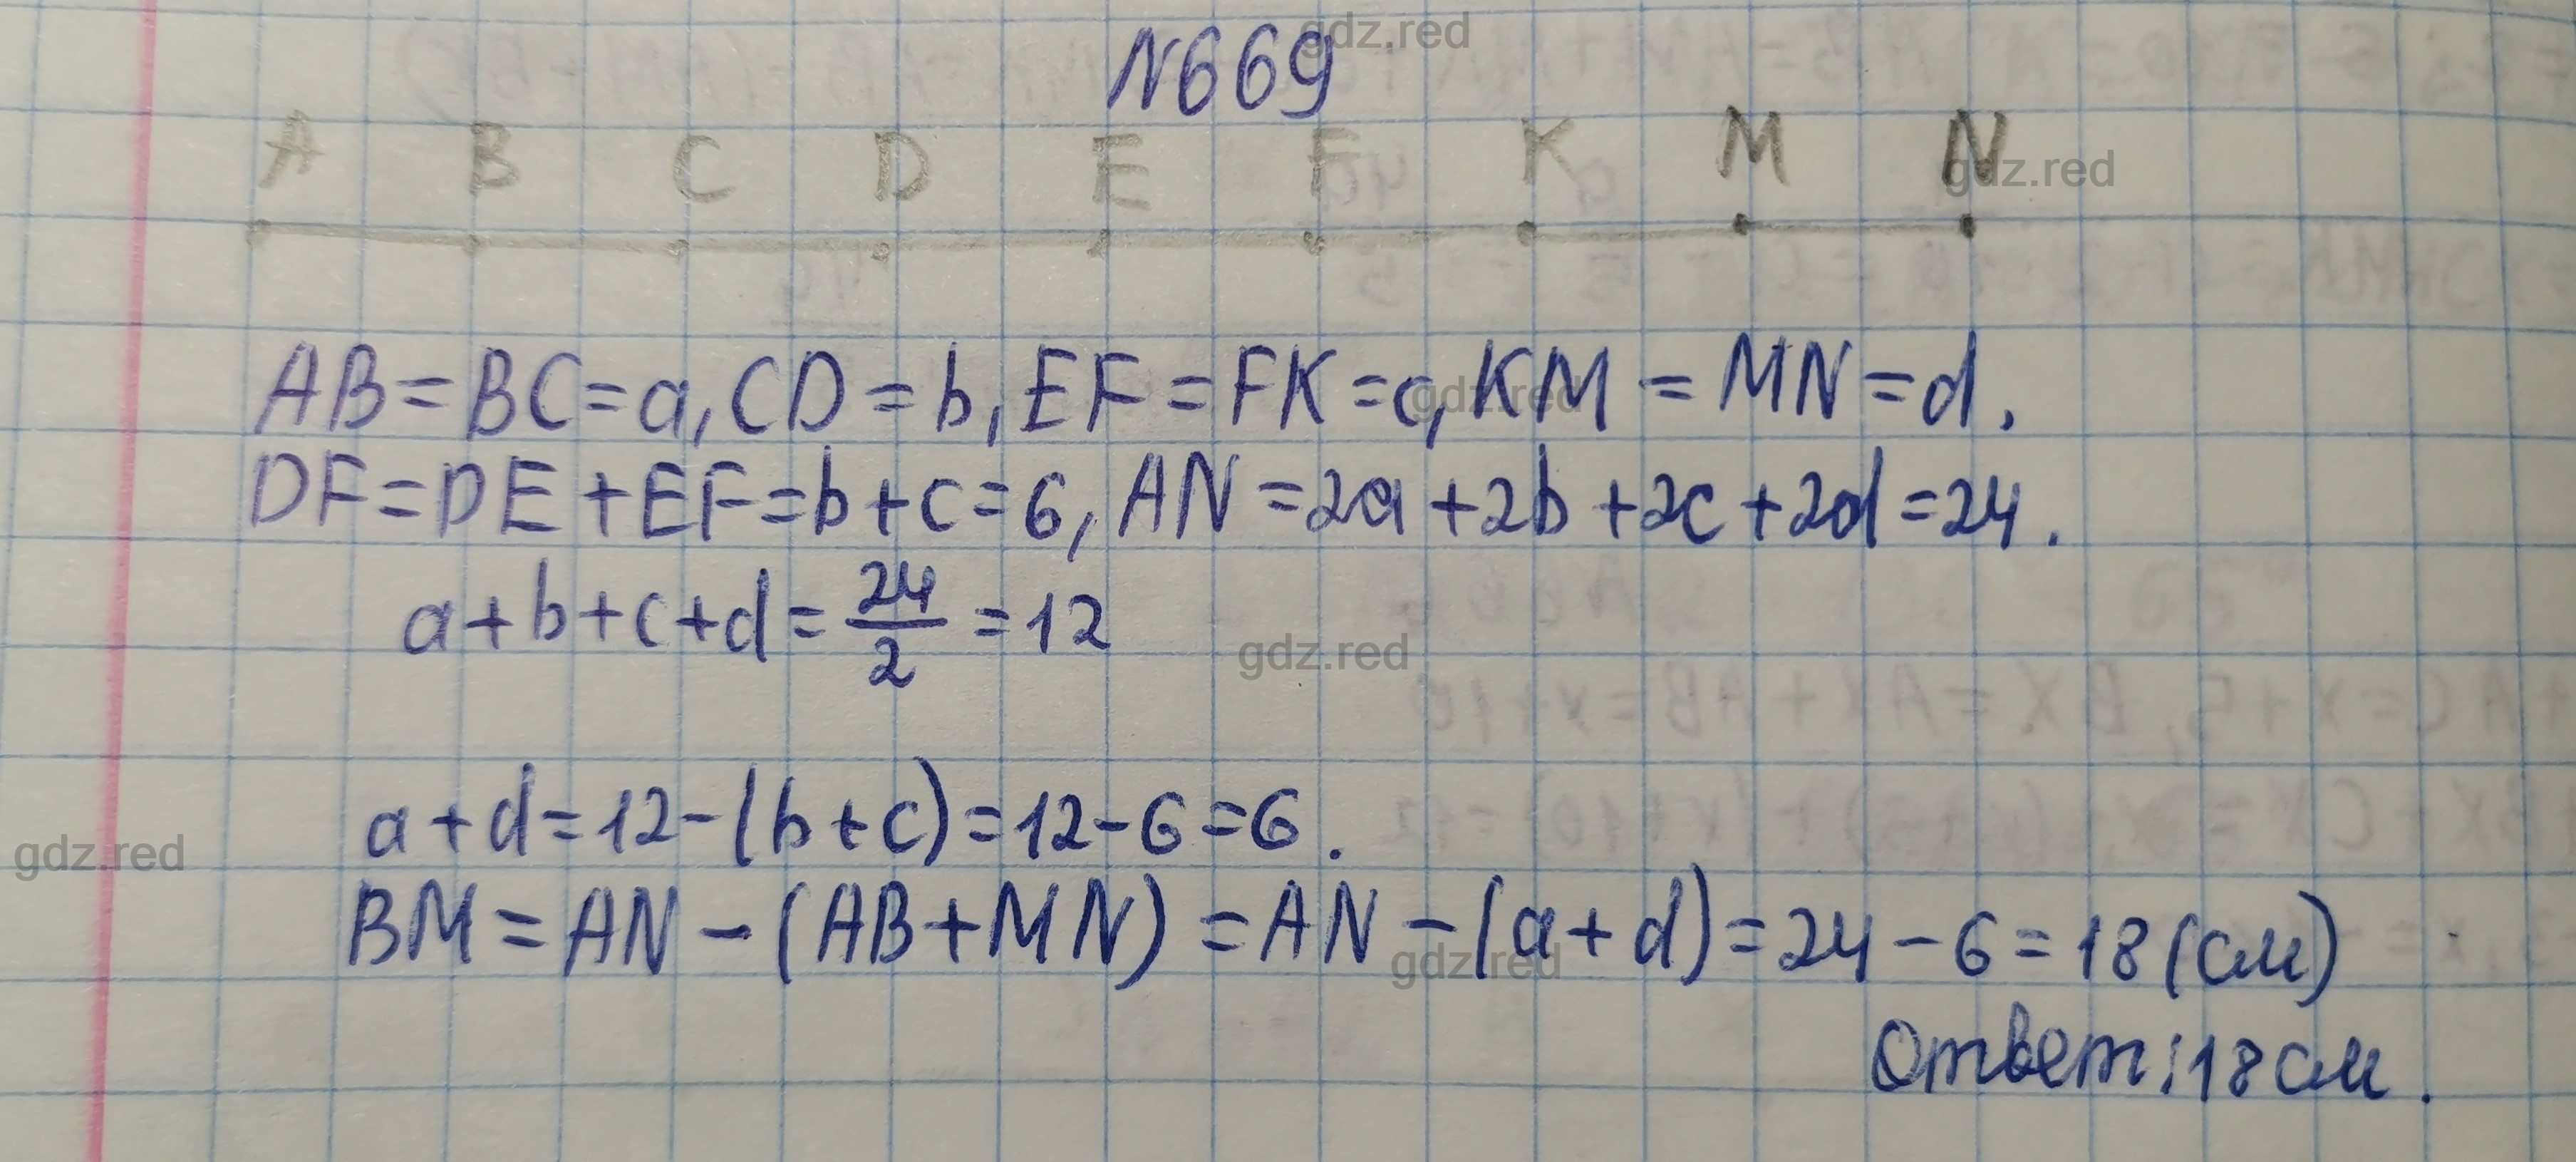 N669
A B C D E F K M N
AB=BC=a, CD=b, EF=FK=c, KM=MN=d.
DF=DE+EF=b+c=6, AN=2a+2b+2c+2d=24.
a+b+c+d=24/2=12
a+d=12-(b+c)=12-6=6.
BM=AN-(AB+MN)=AN-(a+d)=24-6=18(см)
Ответ: 18 см.
gdz.red
gdz.red
gdz.red
gdz.red
gdz.red
gdz.red